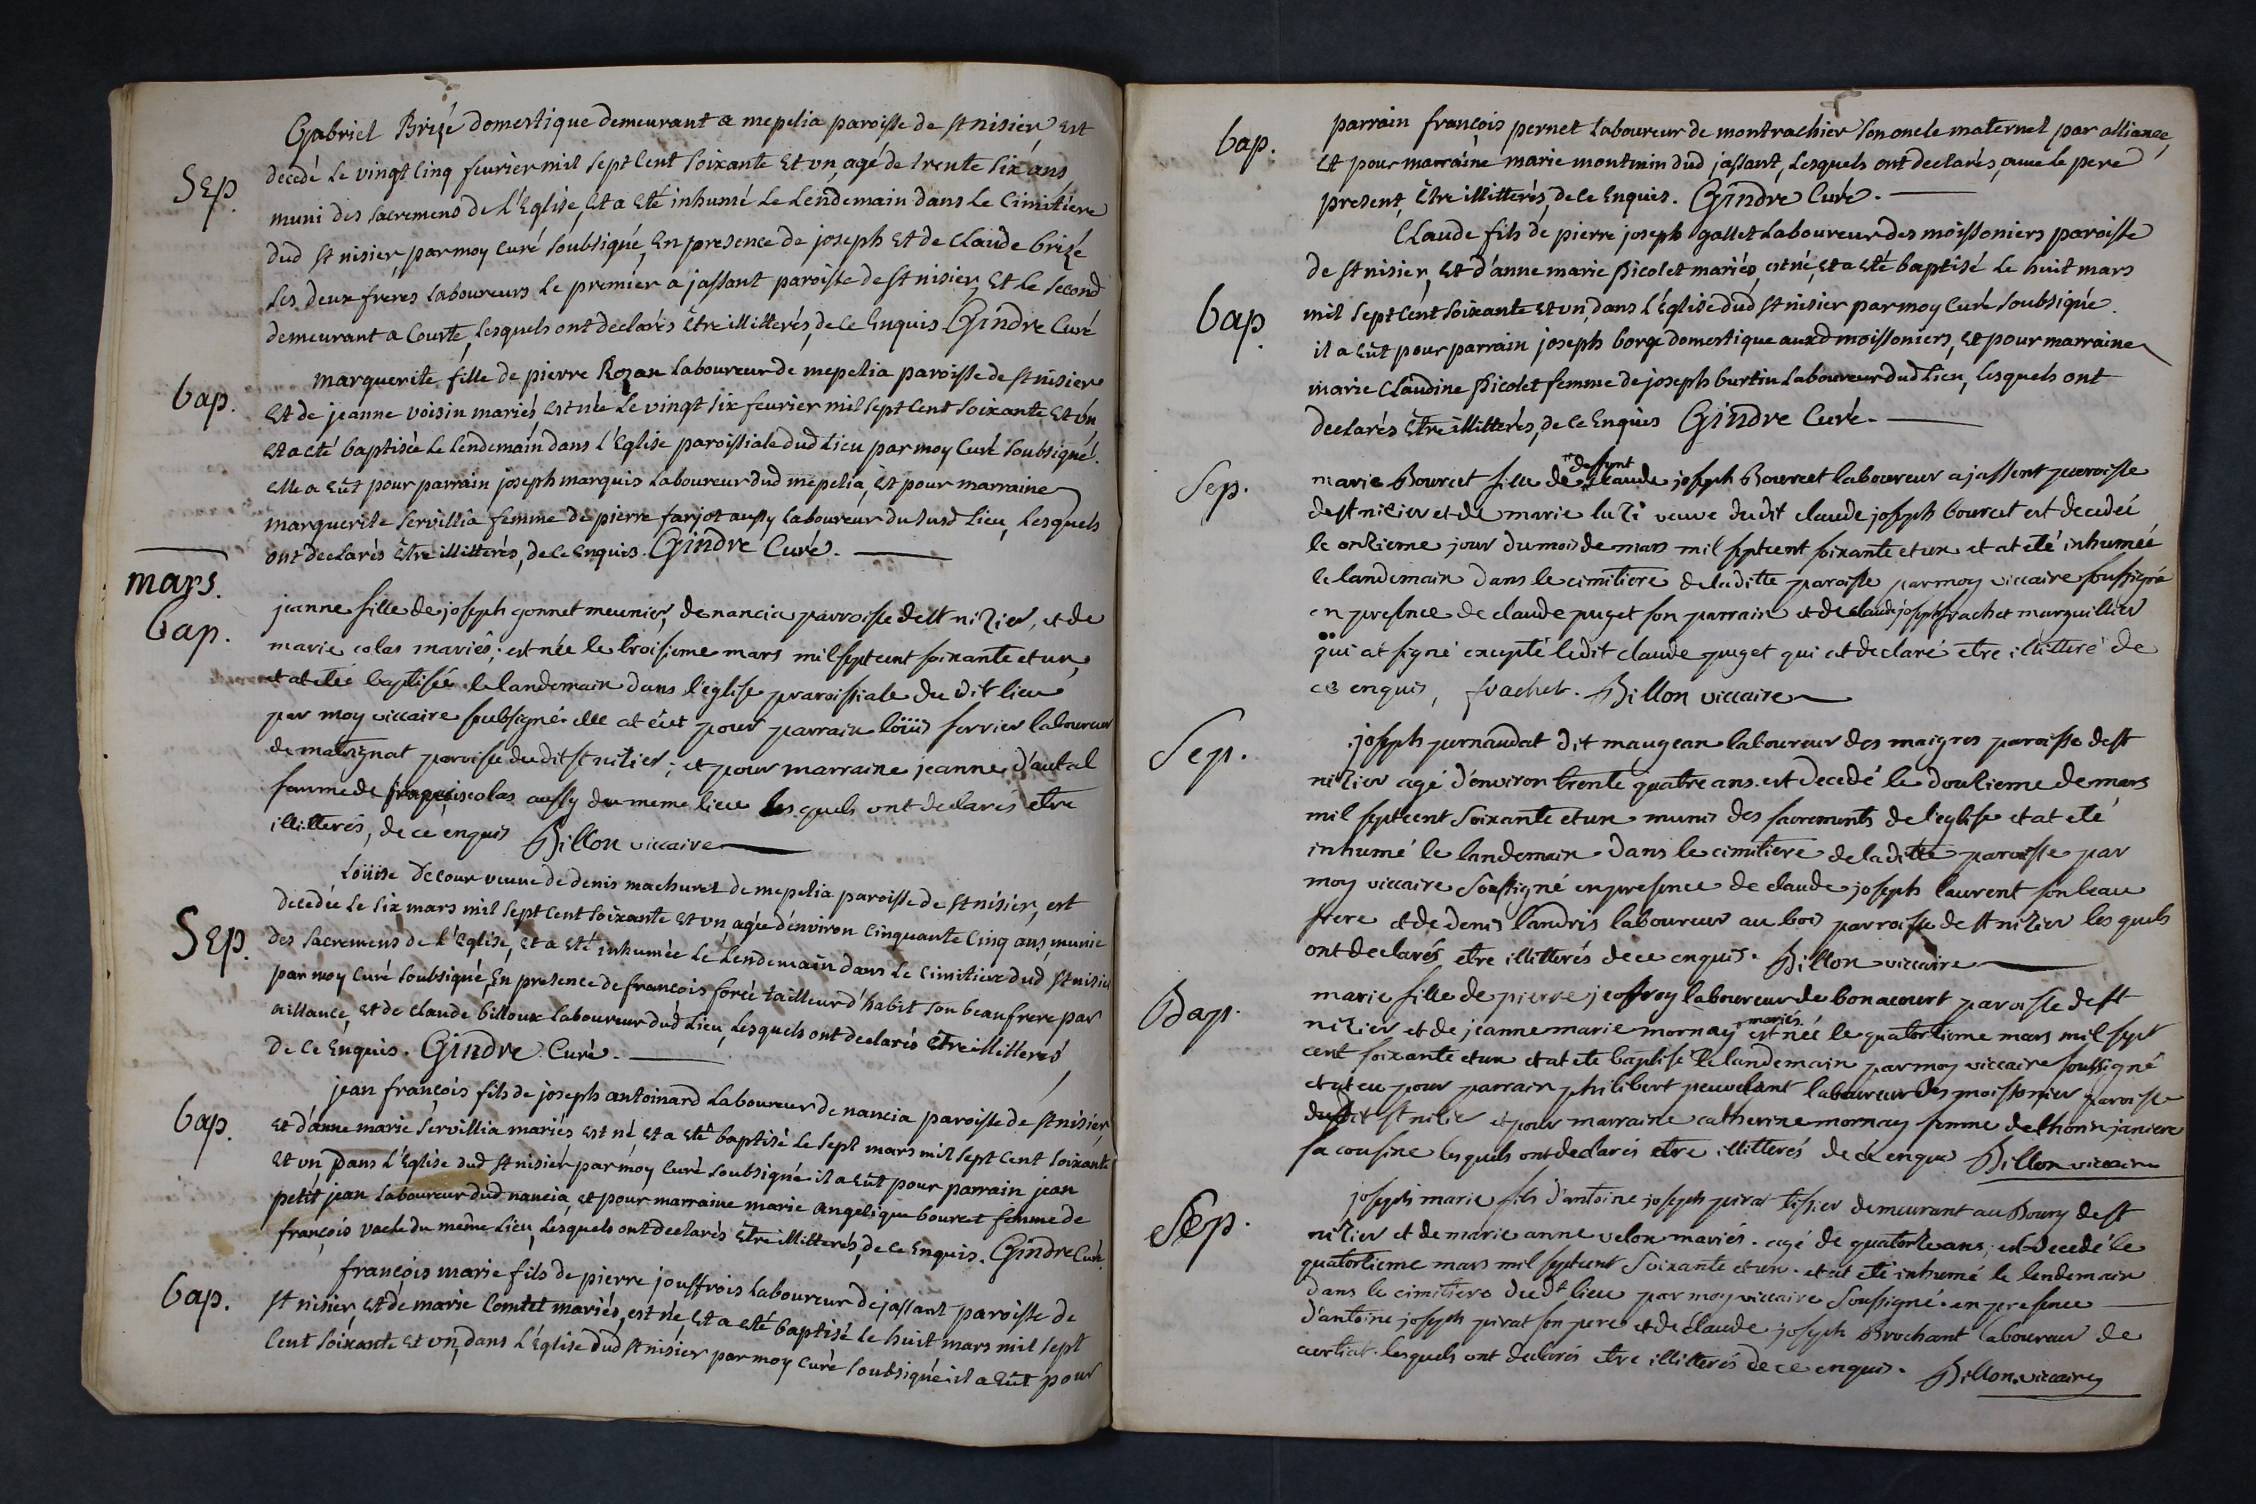 Gabriel Brizé domestique demeurant a mepelia paroisse de st nisier, est
Sep. decedé le vingt cinq feurier mil sept cent soixante et un, agé de trente six ans
muni des sacremens de l'Eglise, et a eté inhumé le lendemain dans le cimitiere
dud st nisier, par moy curé soubsigné, en presence de joseph et de claude brizé
les deux freres laboureurs le premier a jassant paroisse de st nisier, et le second
demeurant a courte, lesquels ont declarés être illitterés, de ce enquis Gindre curé
bap. marguerite fille de pierre Rozan laboureur de mepelia paroisse de st nisier
et de jeanne voisin mariés est née le vingt six feurier mil sept cent soixante et un
et a eté baptisée le lendemain dans l'Eglise paroissiale dud lieu par moy curé soubsigné.
elle a eût pour parrain joseph marquis laboureur dud mepelia, et pour marraine
marguerite servillia femme de pierre farjot aussy laboureur du susd lieu, lesquels
ont declarés être illitterés, de ce enquis. Gindre curé.
mars.
bap. jeanne fille de joseph gonnet meunier, de nancia parroisse de st nizier, et de
marie colas mariés; est née le troisieme mars mil sept cent soixante et un,
et at eté baptisée le landemain dans l'eglise paroissiale du dit lieu
par moy viccaire soubsigné. elle at eut pour parrain loüis ferrier laboureur
de malvignat paroisse du dit st nizier; et pour marraine jeanne d'autal
femme de françois colas aussy du meme lieu les quels ont declarés etre
illitterés, de ce enquis Billon viccaire
loüise decour veuve de denis machuret de mepelia paroisse de st nisier, est
Sep. decedée le six mars mil sept cent soixante et un agée d'environ cinquante cinq ans, munie
des sacremens de l'Eglise, et a eté inhumée le lendemain dans le cimitiere dud st nisier
par moy curé soubsigné, en presence de francois forêt tailleur d'habit son beau frere par
aillance, et de claude billoux laboureur dud lieu, lesquels ont declarés être illitterés
de ce enquis. Gindre curé.
bap. jean françois fils de joseph antoinard laboureur de nancia paroisse de st nisier,
et d'anne marie servillia mariés est né et a eté baptisé le sept mars mil sept cent soixante
et un dans l'Eglise dud st nisier par moy curé soubsigné. il a eût pour parrain jean
petit jean laboureur dud nancia, et pour marraine marie angelique bouret femme de
françois vache du même lieu, lesquels ont declarés être illitterés, de ce enquis. Gindre curé.
bap. françois marie fils de pierre jouffrois laboureur de jassant paroisse de
st nisier, et de marie comtet mariés, est né et a eté baptisé le huit mars mil sept
cent soixante et un, dans l'Eglise dud st nisier par moy curé soubsigné. il a eût pour
bap. parrain françois pernet laboureur de montrachier son oncle maternel par alliance,
et pour marraine marie montmin dud jassant, lesquels ont declarés, avec le pere
present, être illitterés, de ce enquis. Gindre curé.
claude fils de pierre joseph gallet laboureur des moissoniers paroisse
de st nisier, et d'anne marie Picolet mariés, est né, et a eté baptisé le huit mars
bap. mil sept cent soixante et un, dans l'Eglise dud st nisier par moy curé soubsigné.
il a eût pour parrain joseph borge domestique auxd moissoniers, et pour marraine
marie claudine Picolet femme de joseph burtin laboureur dud lieu, lesquels ont
declarés être illitterés, de ce enquis Gindre curé.
Sep. marie Bourcet fille de deffunt claude joseph Bourcet laboureur a jassent paroisse
de st nizier et de marie luzi veuve du dit claude joseph bourcet est decedée
le onzieme jour du mois de mars mil sept cent soixante et un et at eté inhumée
le landemain dans le cimitiere de la ditte paroisse par moy viccaire soussigné
en presence de claude puget son parrain et de claude joseph frachet marguillier
qui at signé excepté le dit claude puget qui at declaré etre illitteré de
ce enquis, frachet. Billon viccaire
Sep. joseph pernaudat dit maugean laboureur des maigres paroisse de st
nizier agé d'environ trente quatre ans est decedé le douzieme de mars
mil sept cent soixante et un munis des sacrements de l'eglise et at eté
inhumé le landemain dans le cimitiere de la ditte paroisse par
moy viccaire soussigné en presence de claude joseph laurent son beau
frere et de denis landris laboureur au bois parroisse de st nizier les quels
ont declarés etre illitterés de ce enquis. Billon viccaire
Bap. marie fille de pierre jeoffroy laboureur de bonacourt paroisse de st
nizier et de jeanne marie mornay mariés est née le quatorzieme mars mil sept
cent soixante et un et at ete baptisé le landemain par moy viccaire soussigné
et at eu pour parrain philibert peuvelant laboureur des moissonier paroisse
du dit st nizier et pour marraine catherine mornay femme de thomin janiere
sa cousine les quels ont declarés etre illitterés de ce enquis Billon viccaire
Sep. joseph marie fils d'antoine joseph pirat tissier demeurant au Bourg de st
nizier et de marie anne velon mariés. agé de quatorze ans, est decedé le
quatorzieme mars mil sept cent soixante et un. et at eté inhumé le lendemain
dans le cimitiere du dt lieu par moy viccaire soussigné. en presence
d'antoine joseph pirat son pere et de claude joseph Brochant laboureur de
certiat. lesquels ont declarés etre illitterés de ce enquis. Billon viccaire